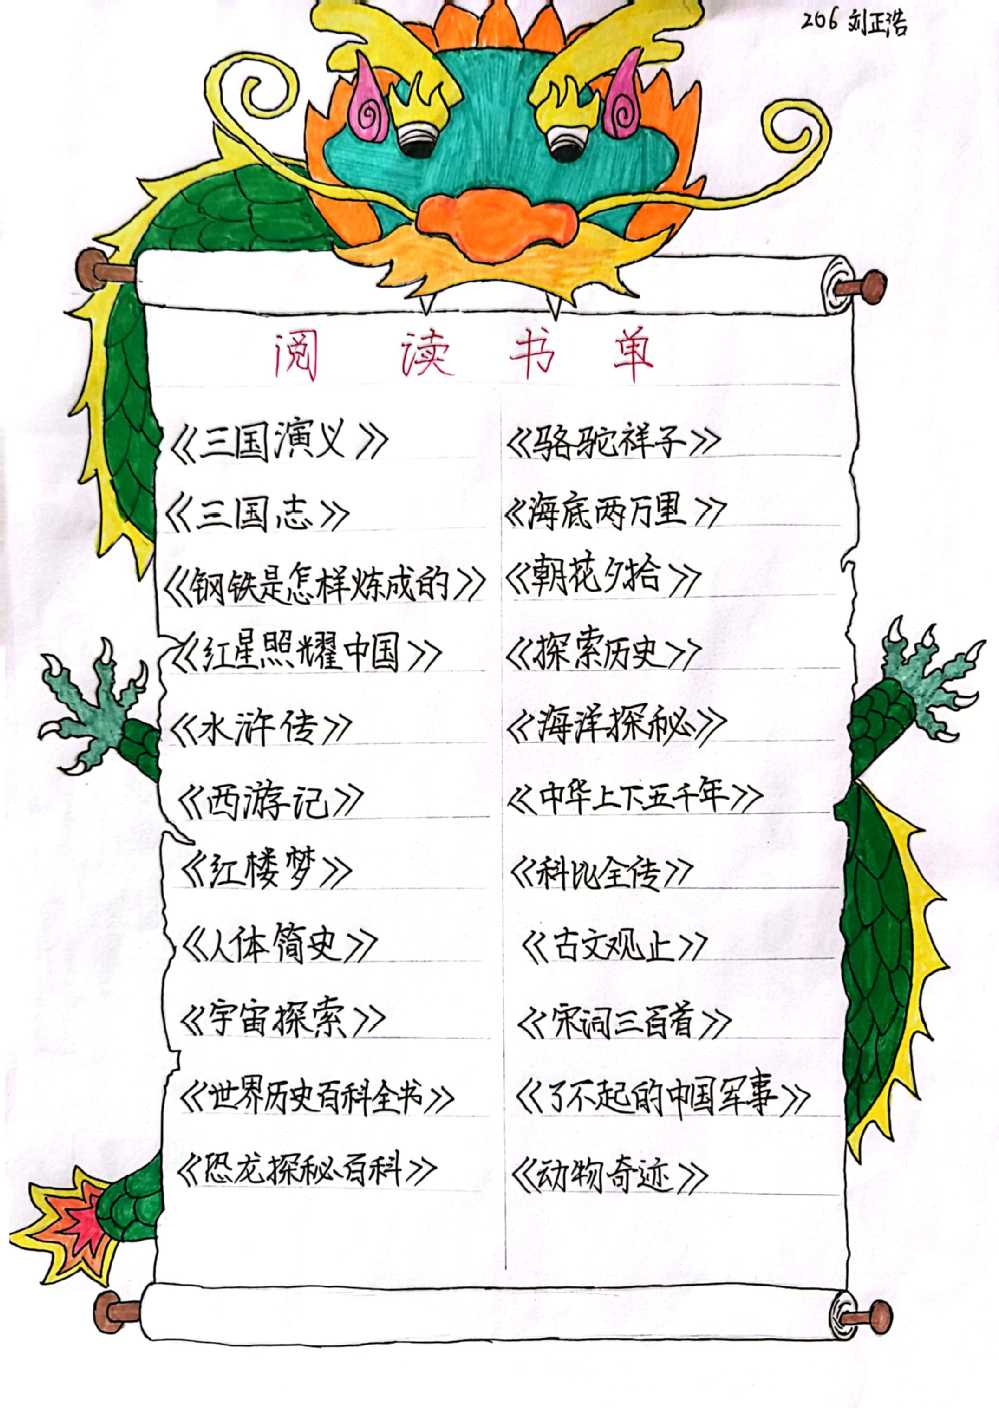 206 刘正浩
阅读书单
《三国演义》
《三国志》
《钢铁是怎样炼成的》
《红星照耀中国》
《水浒传》
《西游记》
《红楼梦》
《人体简史》
《宇宙探索》
《世界历史百科全书》
《恐龙探秘百科》
《骆驼祥子》
《海底两万里》
《朝花夕拾》
《探索历史》
《海洋探秘》
《中华上下五千年》
《科比全传》
《古文观止》
《宋词三百首》
《了不起的中国军事》
《动物奇迹》